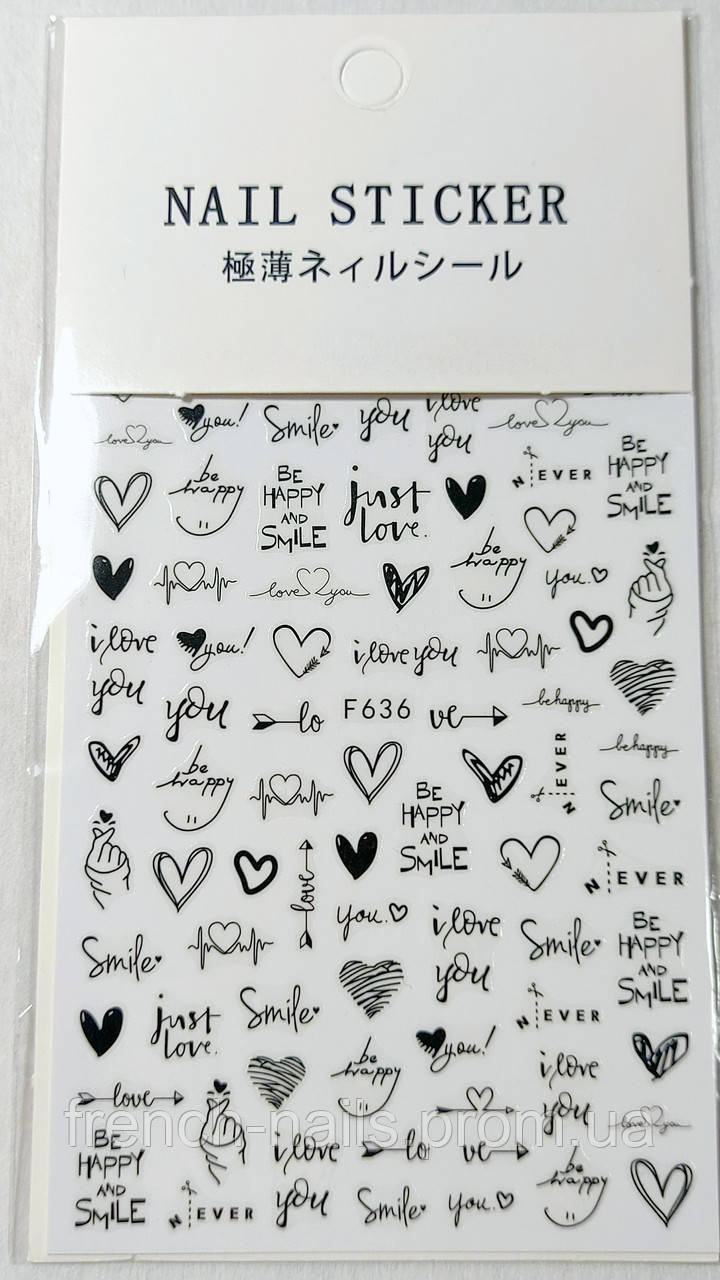 NAIL STICKER
極薄ネィルシール
love you
you!
Smile
you
i love
you
love you
be
happy
BE
HAPPY
AND
SMILE
just
love.
N EVER
BE
HAPPY
AND
SMILE
love you
be
happy
you.
i love
you
you!
i love you
you
lo
F636
ve
be happy
be happy
be
happy
BE
HAPPY
AND
SMILE
N EVER
Smile
love
you.
i love
you
N EVER
Smile
Smile
BE
HAPPY
AND
SMILE
just
love.
Smile
N EVER
be
happy
you!
i love
you
love
love you
french-nails.prom.ua
BE
HAPPY
AND
SMILE
N EVER
i love
you
lo
ve
Smile
you.
be
happy